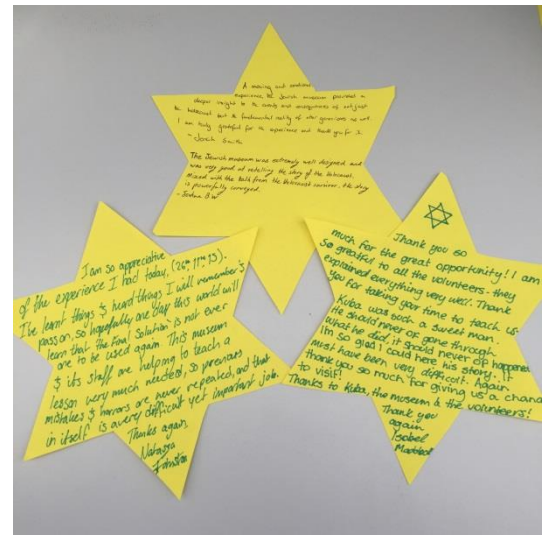 A moving and emotional
experience the Jewish museum provided a
deeper insight to the events and consequences of not just
the holocaust but the fundamental reality of other genocides
I am truly grateful for the experience and thank you for it
Smith
The Jewish museum was extremely well designed and
was very good at retelling the story of the Holocaust.
Mixed with the talk from the Holocaust survivor, the story
is powerfully conveyed.
- Joshua
I am so appreciative
of the experience I had today, (26th 11th 13).
I've learnt things & heard things I will remember &
pass on, so hopefully one day this world will
learn that the final solution is not ever
one to be used again. This museum
& it's staff are helping to teach a
lesson very much needed, so previous
mistakes & horrors are never repeated, and that
in itself is a very difficult yet important job.
Thanks again,
Natasza
Johnston
Thank you so
much for the great opportunity! I am
so greatful to all the volunteers - they
explained everything very well. Thank
you for taking your time to teach us.
Kuba was such a sweet man.
He should never of gone through
what he did, it should never of happened
I'm so glad I could here his story. It
must have been very difficult. Again
thank you so much for giving us a chance
to visit!
Thanks to Kuba, the museum & the volunteers!
Thank you
again
Isobel